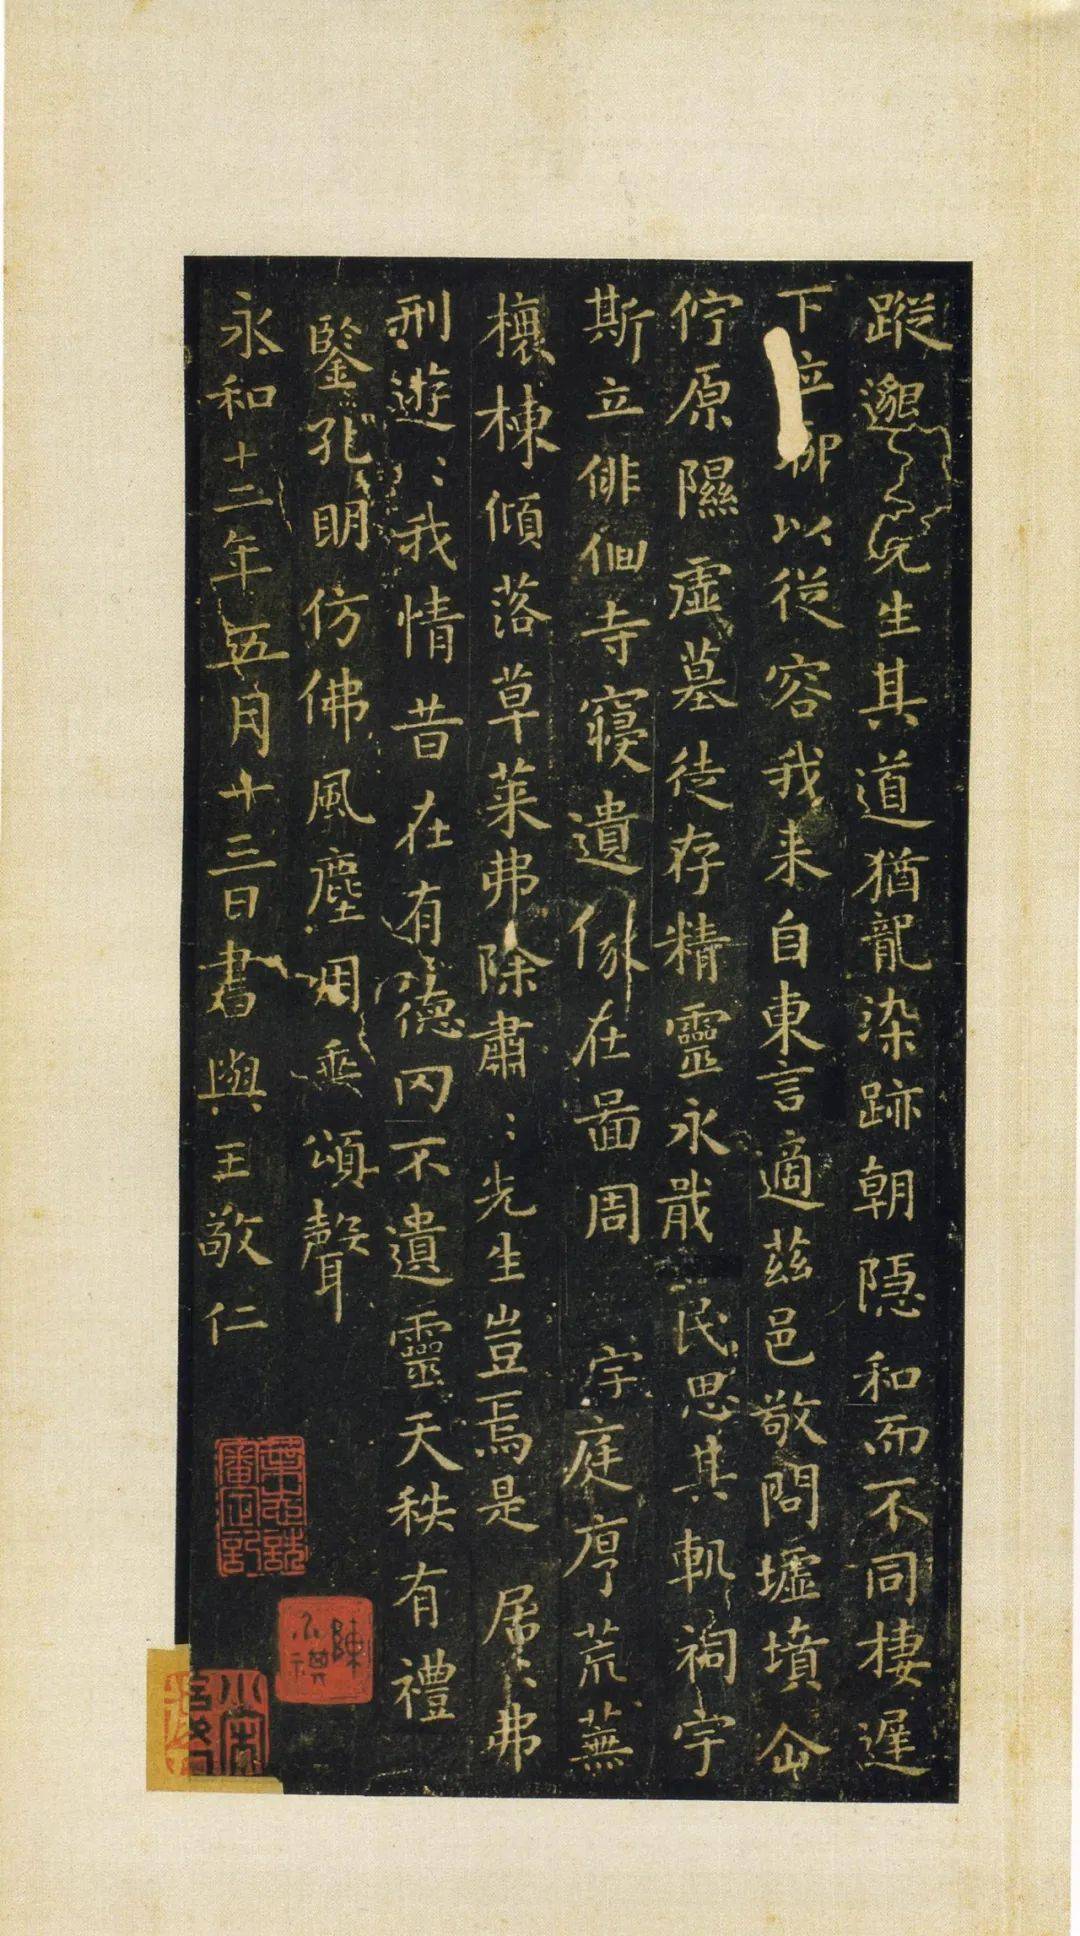 蹤邈邈先生其道猶龍染跡朝隱和而不同棲遲
下位聊以從容我来自東言適茲邑敬問墟墳企
佇原隰虛墓徒存精靈永戢民思其軌祠宇
斯立俳佪寺寢遺像在啚周宇庭序荒蕪
榱棟傾落草萊弗除肅〻先生豈焉是居〻弗
刑遊〻我情昔在有德罔不遺靈天秩有禮
鑒孔明仿佛風塵用垂頌聲
永和十二年五月十三日書與王敬仁
葉志詵審定記